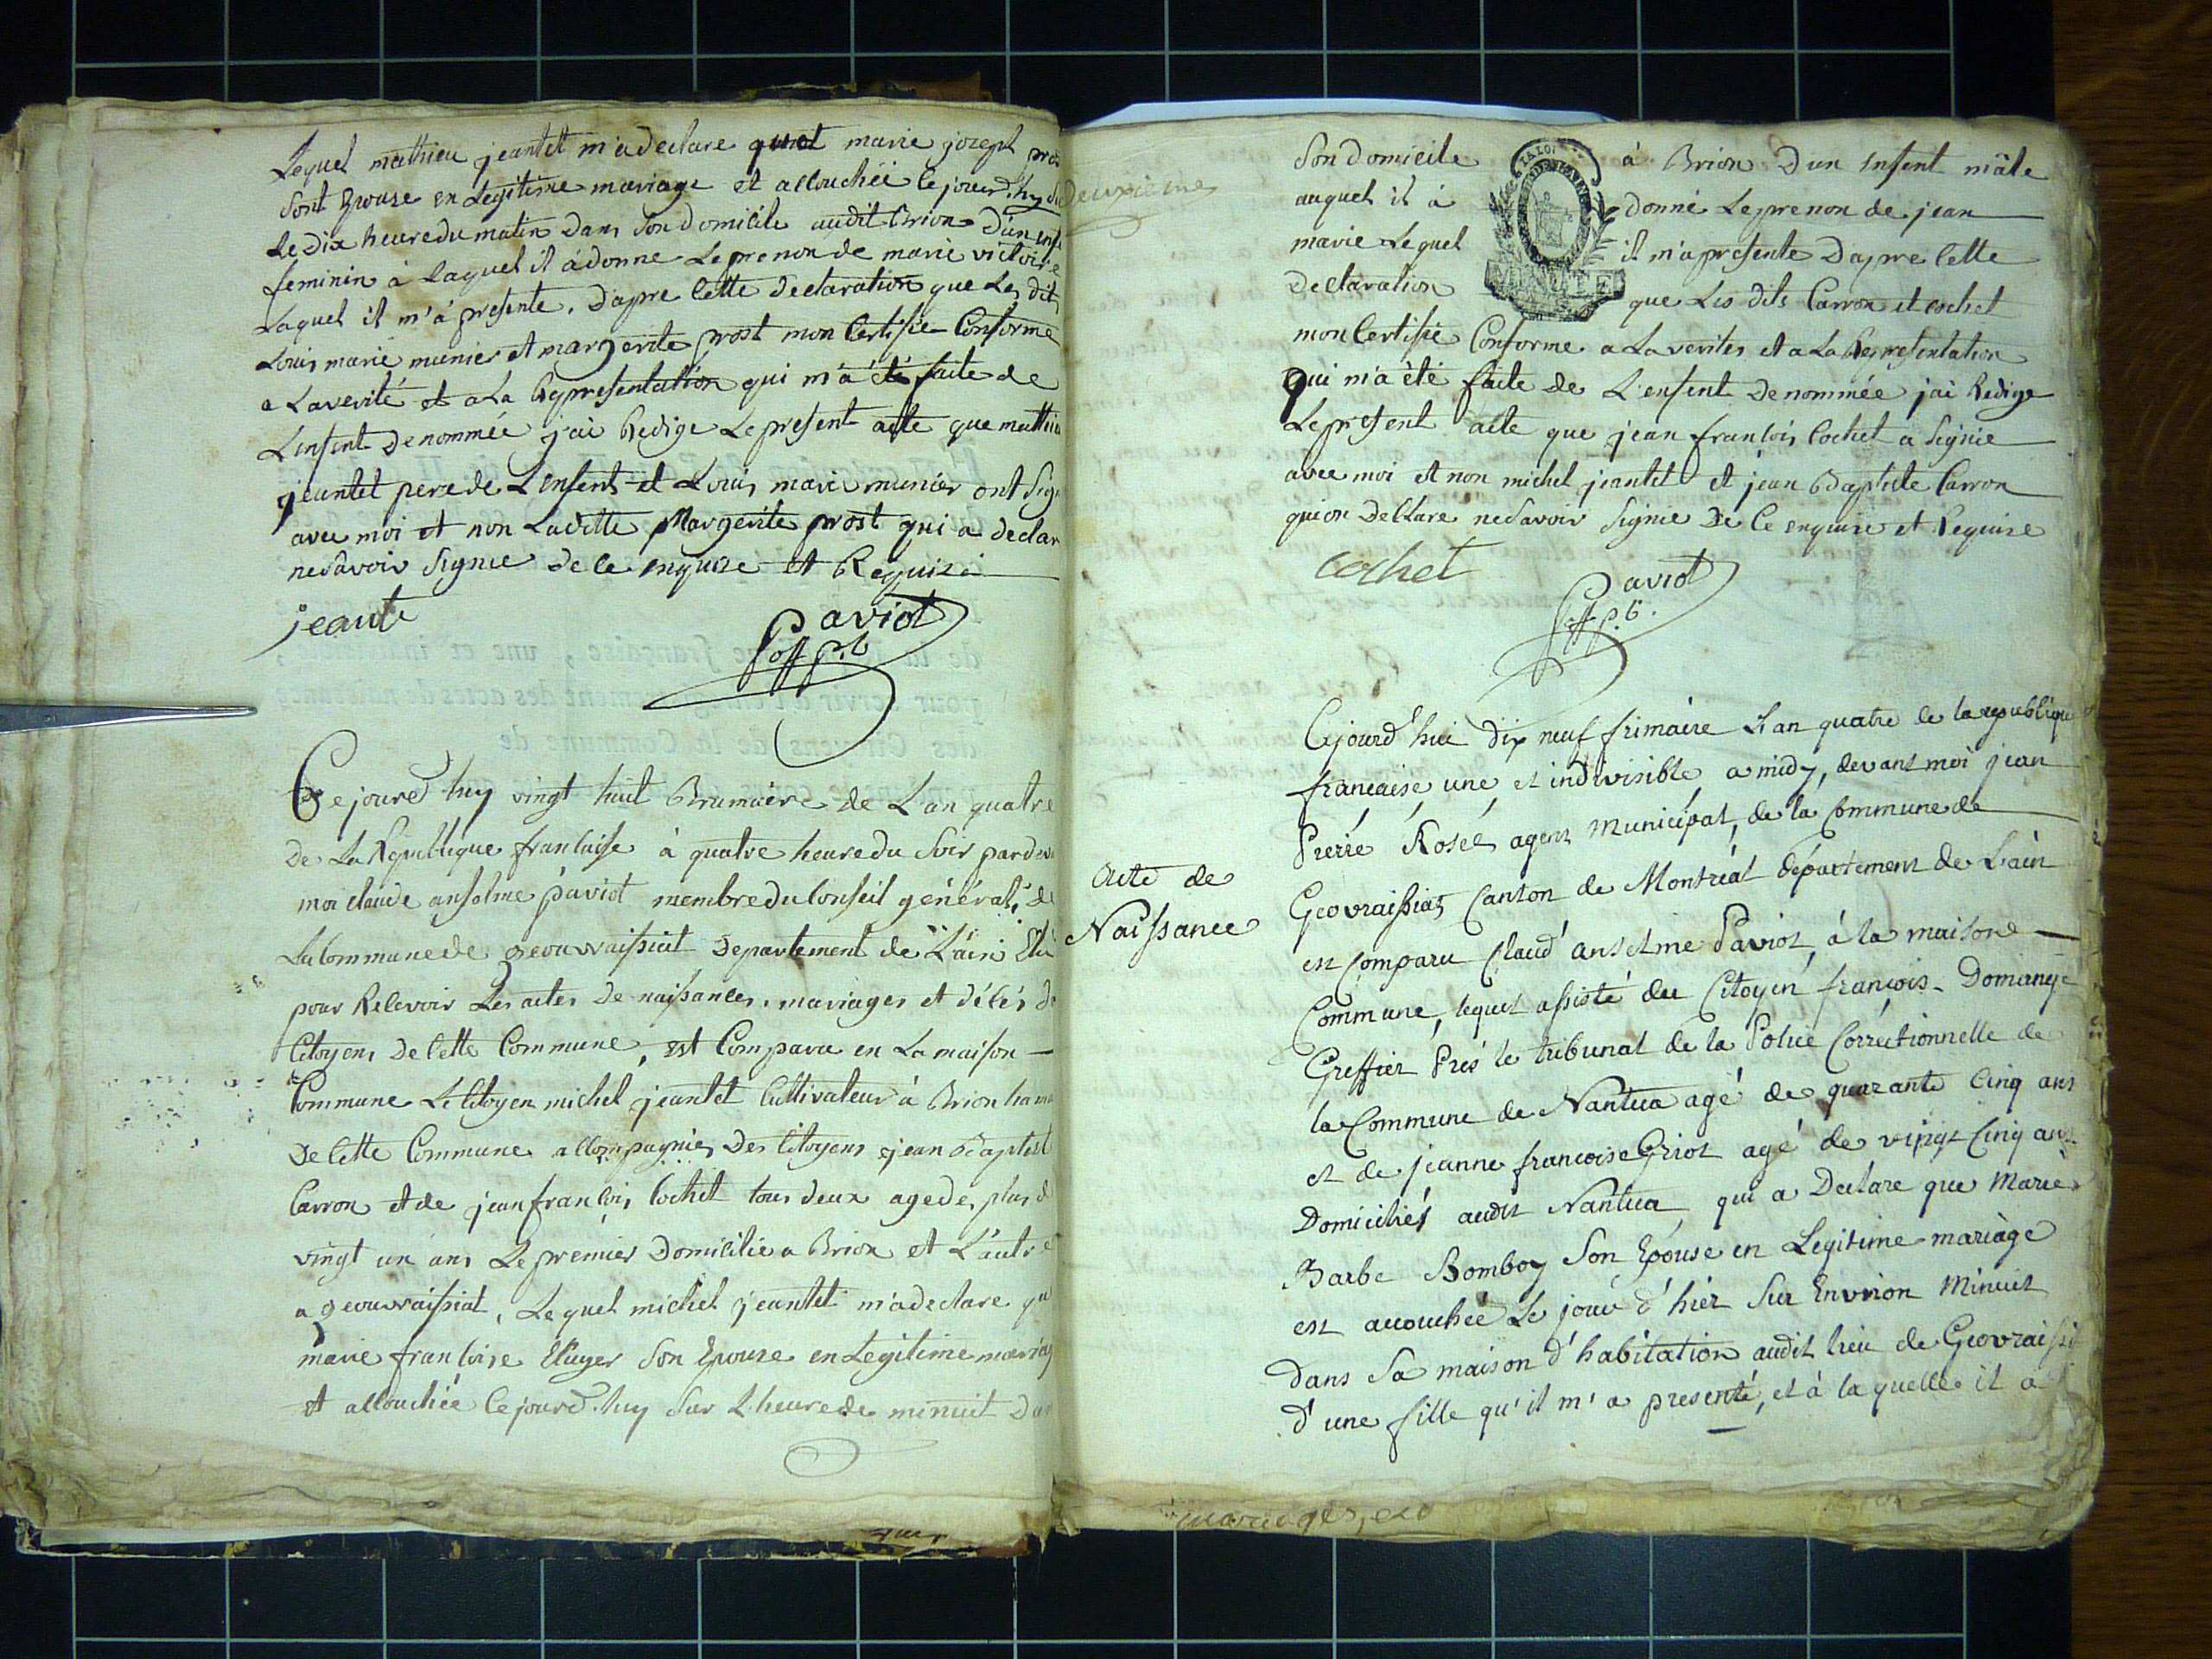 Lequel mathieu jeantet m'a declare quet marie jozeph
sont Epouze en Legitime mariage et allouchéé le jourd'huy
Le Dix heure du matin Dans son Domicile audit Brion D'un
feminin à Laquel il à donne Le prenon de marie victoire
Laquel il m'à presente. D'apre Cette Declaration que Les dit
Louis marie munier et margerite prost mon Certifie Conforme
a La verité et a La Representation qui m'à été faite de
L'enfent Denommée j'ai Redige Le present acte que mathieu
jeantet pere de L'enfent et Louis marie munier ont Sign
avec moi et non Laditte Margerite prost qui a declar
ne Savoir Signie de Ce enquize et Requize
jeante
Paviot
off p.b
Ce jourd'huy vingt huit Brumaire de L'an quatre
De La Republique francaise à quatre heure du Soir pardev
moi claude anselme paviot membre du Conseil général, de
La Commune de geouvraissiat Departement de L'ain Elu
pour Recevoir Les actes De naissances, mariages et décés de
Citoyens De Cette Commune, est Comparu en La maison
Commune Le Citoyen michel jeantet Cultivateur à Brion hame
De Cette Commune accompagnies Des Citoyens jean Baptist
Carron et de jean francois Cochet tous deux agede, plus d
vingt un ans Le premier Domicilie a Brion et L'autre
a geouvraissiat, Lequel michel jeantet m'a declare qu
marie francoise Eluyer Son Epouze en Legitime mariag
et allouchée Ce jourd'huy Sur L'heure de menuit Da
Deuxieme
Son Domicile à Brion D'un Enfent mâle
auquel il à donné Le prenon de jean
marie Lequel il m'a presente D'apre Cette
Declaration que Les dits Carron et cochet
mon Certifie Conforme a La verites et a La Representation
Qui m'a été faite de L'enfent Denommée j'ai Redige
Le present acte que jean francois Cochet a Signie
avec moi et non michel jeantet et jean Baptiste Carron
qui on Declare ne Savoir Signie De Ce enquise et Requise
LA LOI
Cochet
Paviot
off p.b.
Acte de
Naissance
Cejourd'hui dix neuf frimaire L'an quatre de la republique
francaise une et indivisible, a midy, devant moi jean
Pierre Rosét agent municipal, de la Commune de
Geovraissiat, Canton de Montréal département de L'ain
est Comparu Claud' anselme Paviot, à la maisone
Commune, lequel assisté du Citoyen françois Domienge
Greffier Prés le tribunal de la Police Correctionnelle de
la Commune de Nantua agé de quarante Cinq ans
et de jeanne francoise Griot agé de vingt Cinq ans
Domiciliés audit Nantua, qui a Declare que Marie
Barbe Bomboy Son Epouse en Legitime mariàge
est accouchée Le jour d'hier Sur Environ Minuit
Dans Sa maison d'habitation audit lieu de Geovraissi
d'une fille qu'il m'a presenté, et à laquelle il a
mariages, et